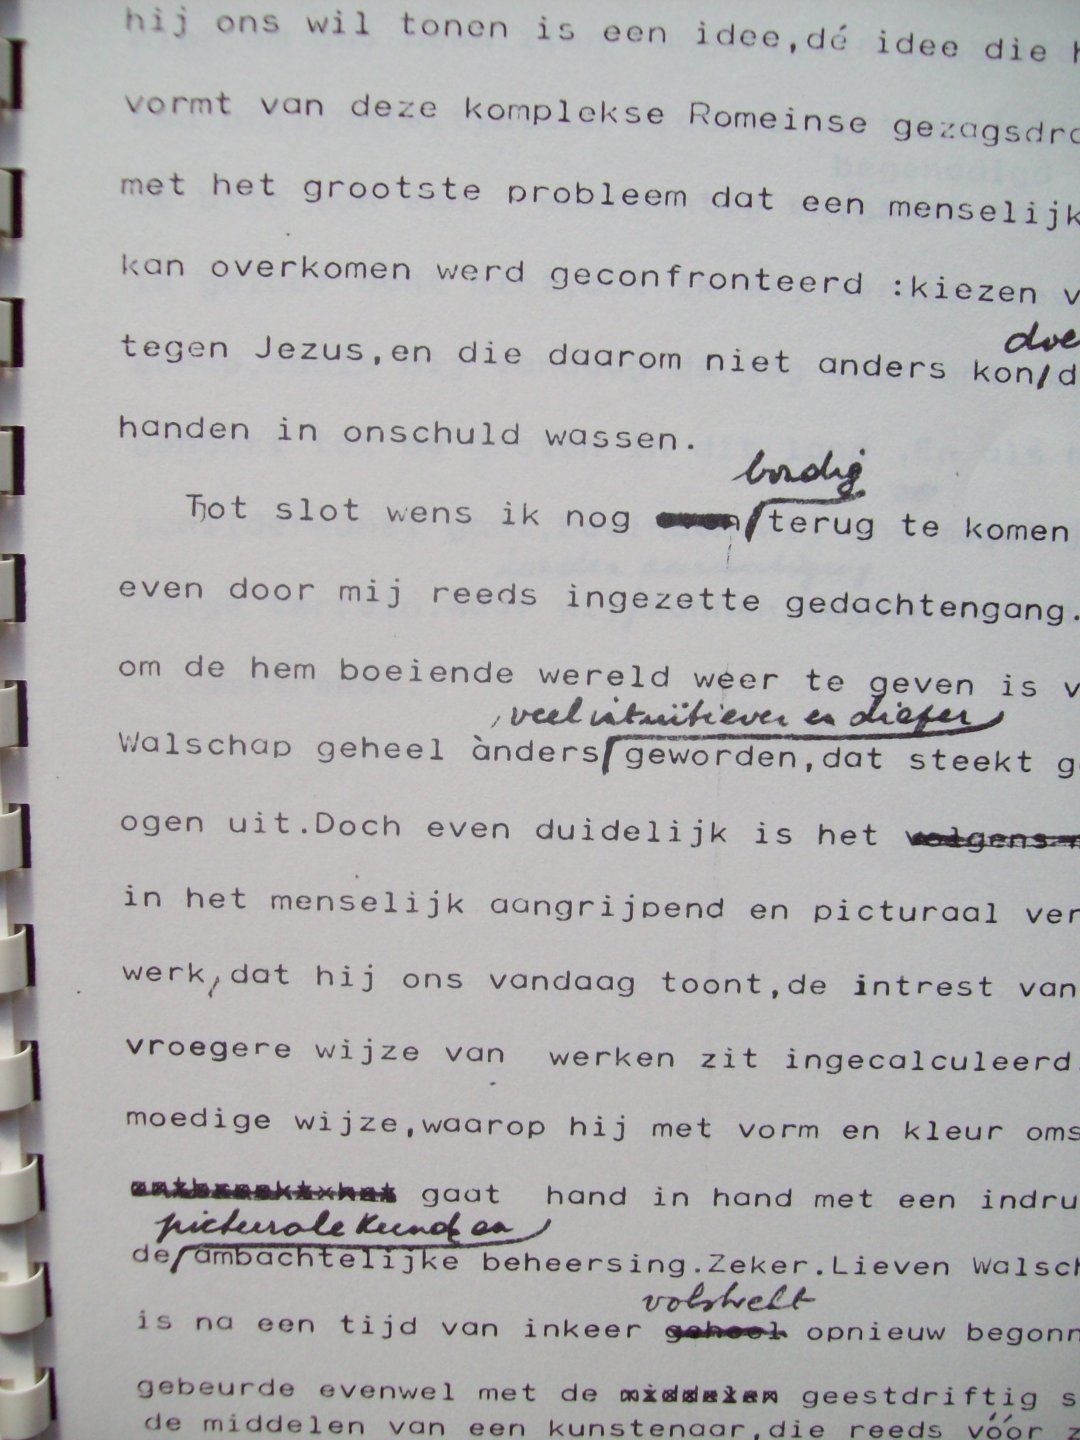 hij ons wil tonen is een idee,dé idee die h
vormt van deze komplekse Romeinse gezagsdra
met het grootste probleem dat een menselijk
kan overkomen werd geconfronteerd :kiezen v
doe
tegen Jezus,en die daarom niet anders kon/d
handen in onschuld wassen.
bondig
Tot slot wens ik nog even/terug te komen
even door mij reeds ingezette gedachtengang.
om de hem boeiende wereld weer te geven is v
, veel intuïtiever en dieper
Walschap geheel ànders/geworden,dat steekt g
ogen uit.Doch even duidelijk is het volgens
in het menselijk aangrijpend en picturaal ver
werk,dat hij ons vandaag toont,de intrest van
vroegere wijze van werken zit ingecalculeerd
moedige wijze,waarop hij met vorm en kleur oms
gaat hand in hand met een indru
picturale kunde en
de/ambachtelijke beheersing.Zeker.Lieven Walsch
volstrekt
is na een tijd van inkeer geheel opnieuw begonn
gebeurde evenwel met de middelen geestdriftig s
de middelen van een kunstenaar,die reeds vóór z